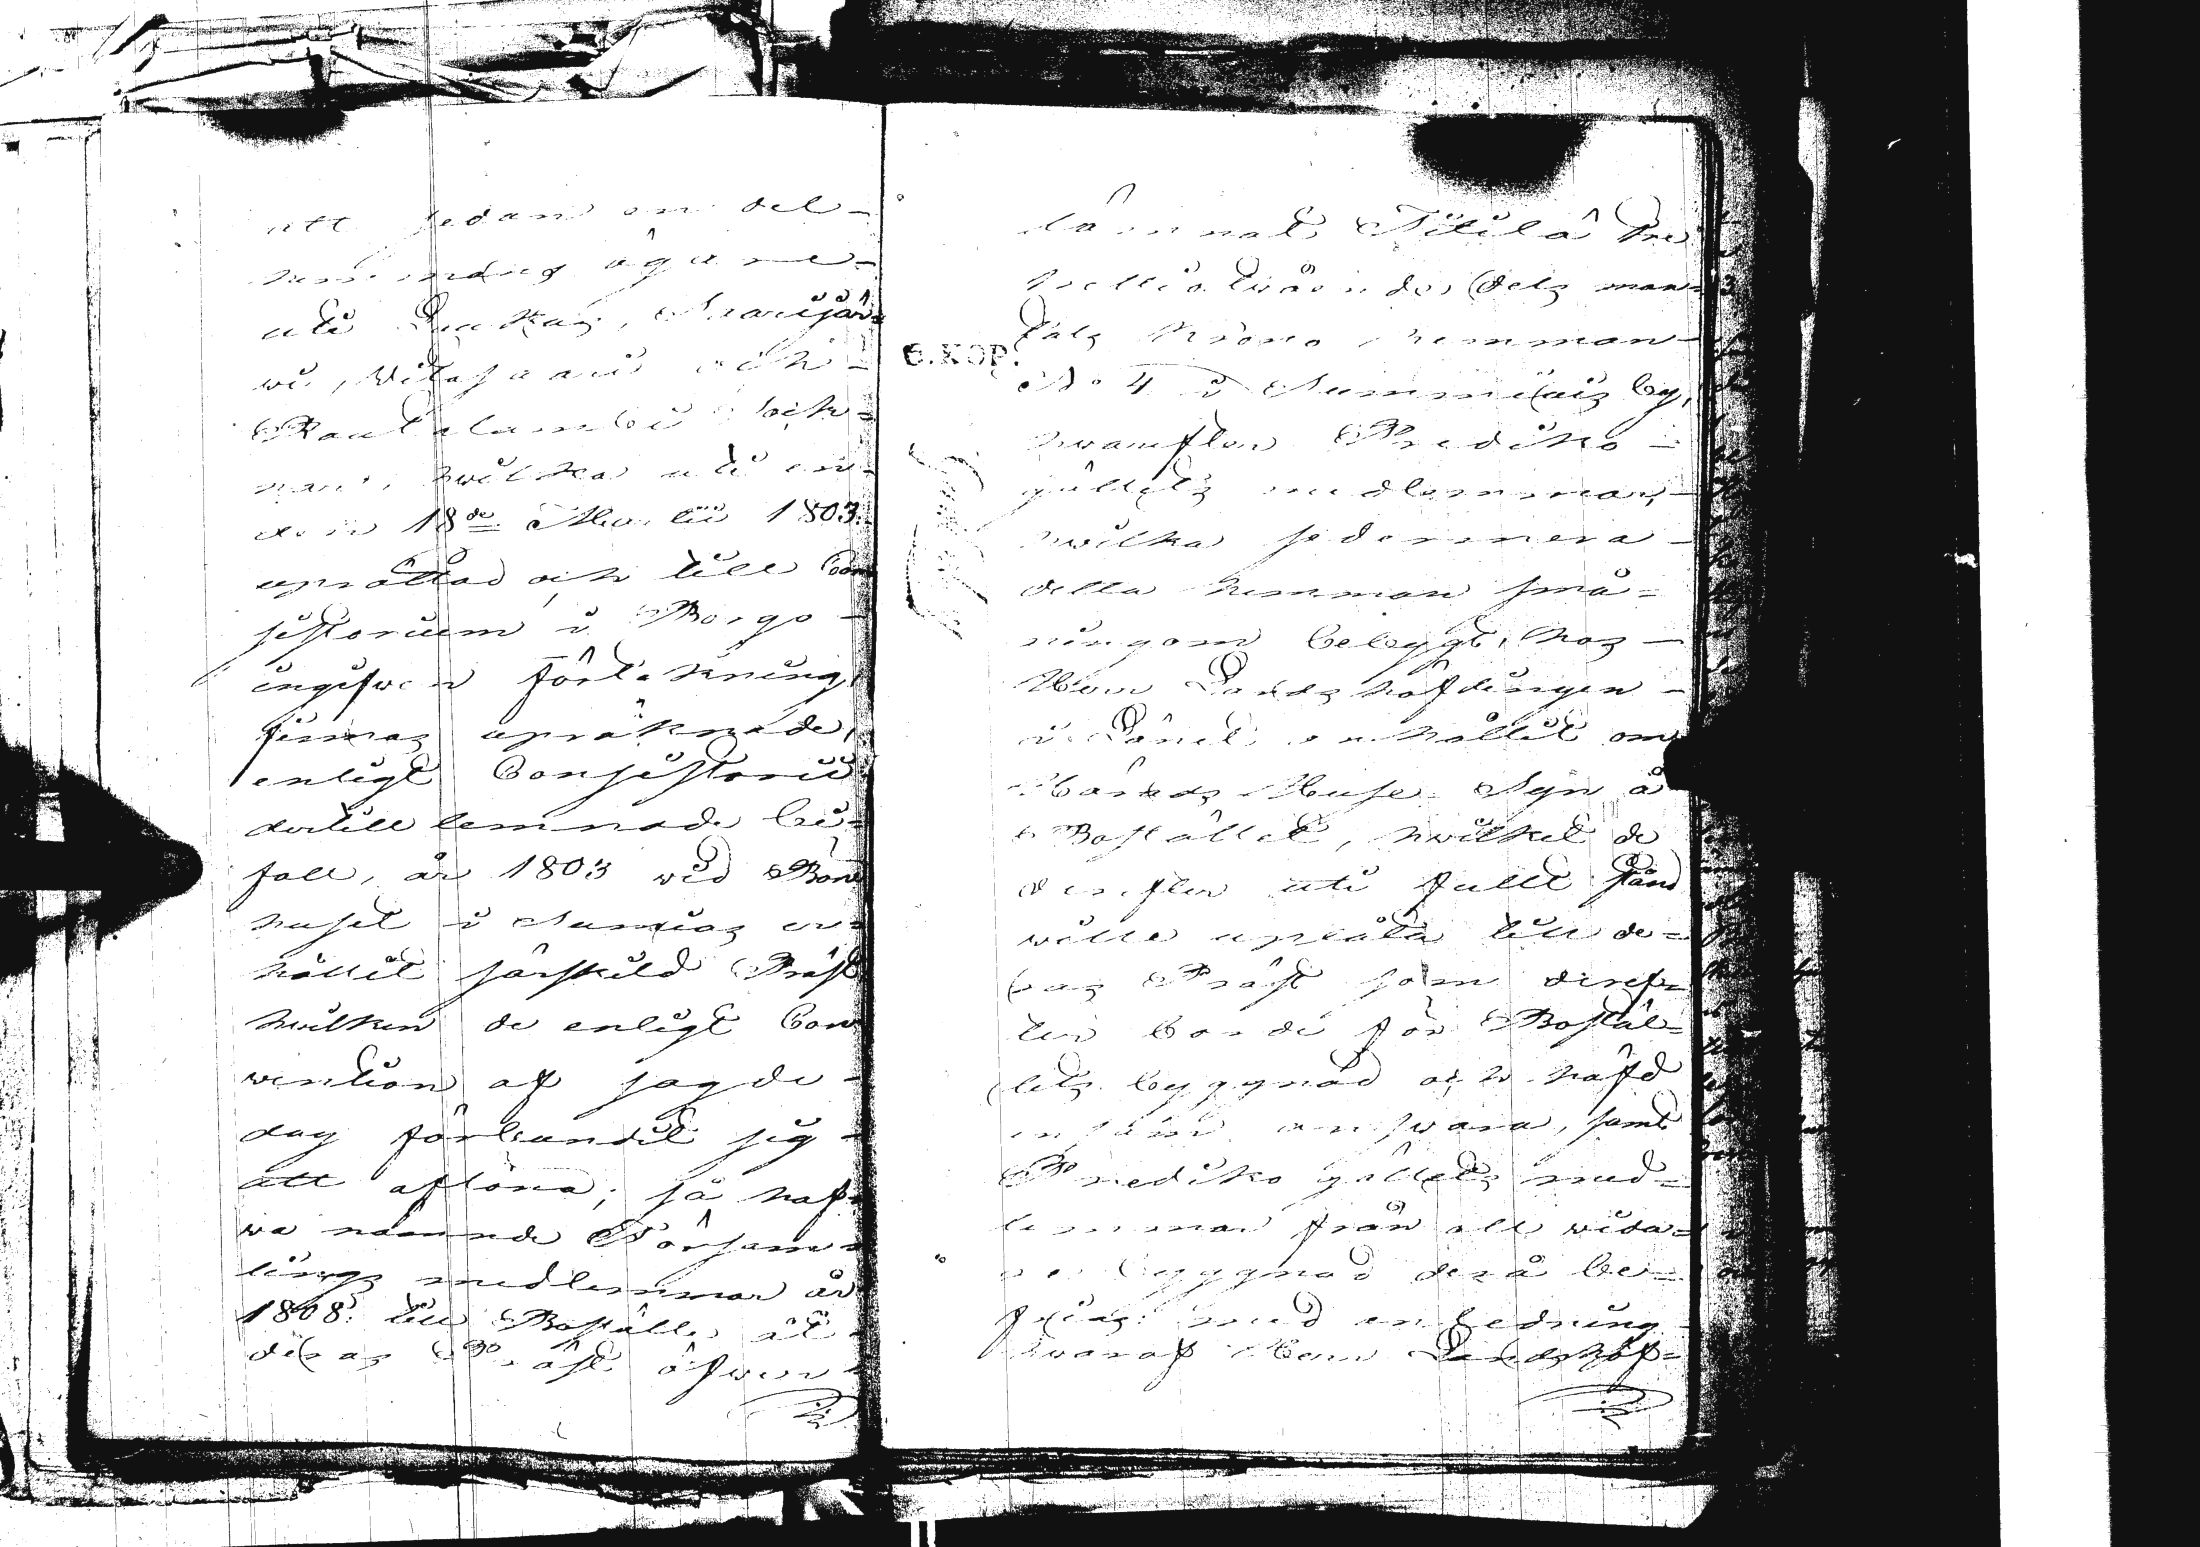 att sedan en del
hemmans ägare
uti Laukas, Saarijär=
wi, Witasaari och
Rautalambi Sock=
nar, hwilka uti en
den 18de Martii 1803
uprättad och till Con
sistorium i Borgo
ingifwen förtekning
finnas upräknade,
enligt Consistorii
dertill lemnade bi=
fall, år 1803 wid Böne
huset i Sumias er=
hållit särskild Präst
hwilken de enligt Con
vention af sagde
dag förbundit sig
att aflöna; så haf=
wa nämnde Försam=
lings medlemmar år
1808 till Boställe åt
deras Präst öfwer=
lämnat Niemelä
dels man=
tals Krono hemman
No 4 i Summiais by,
hwarefter Prediko=
gälletz medlemmar,
hwilka sedermera
detta hemman små=
ningom bebygt, hos
Herr Landshöfdingen
i Länet anhållit om
Härads Huse Syn å
Bostället, hwilket de
derefter uti fullt stånd
wille uplåta till de=
ras Präst som deref=
ter borde för Bostäl=
lets byggnad och häfd
ensam answara, samt
Prediko gällets med=
lemmar från all wida=
re byggnad derå be=
frias: med anledning
hwaraf Herr Landshöf=